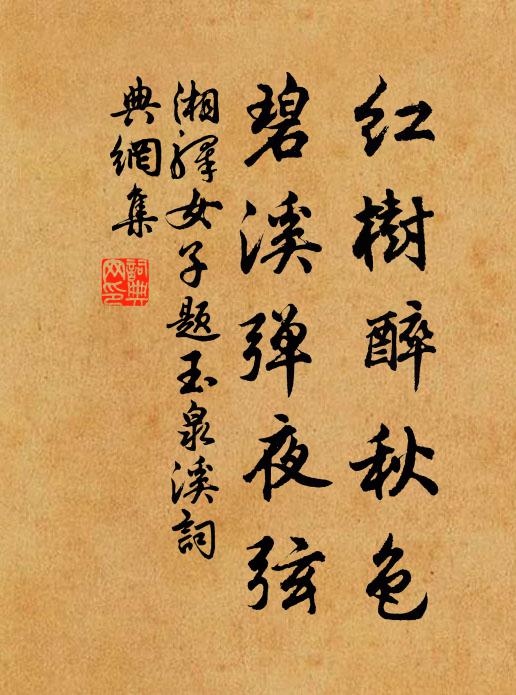 红樹醉秋色
碧溪弹夜弦
湘驛女子题玉泉溪詞
典網集
詞典
网印